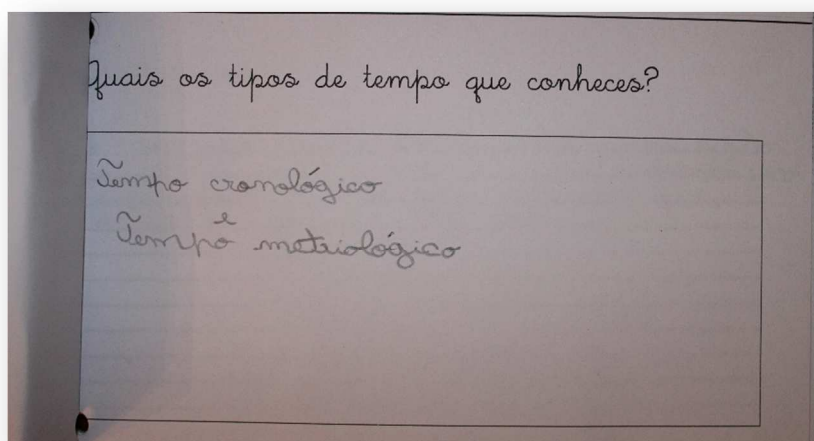 Quais os tipos de tempo que conheces?
Tempo cronológico
Tempo ê metriológico